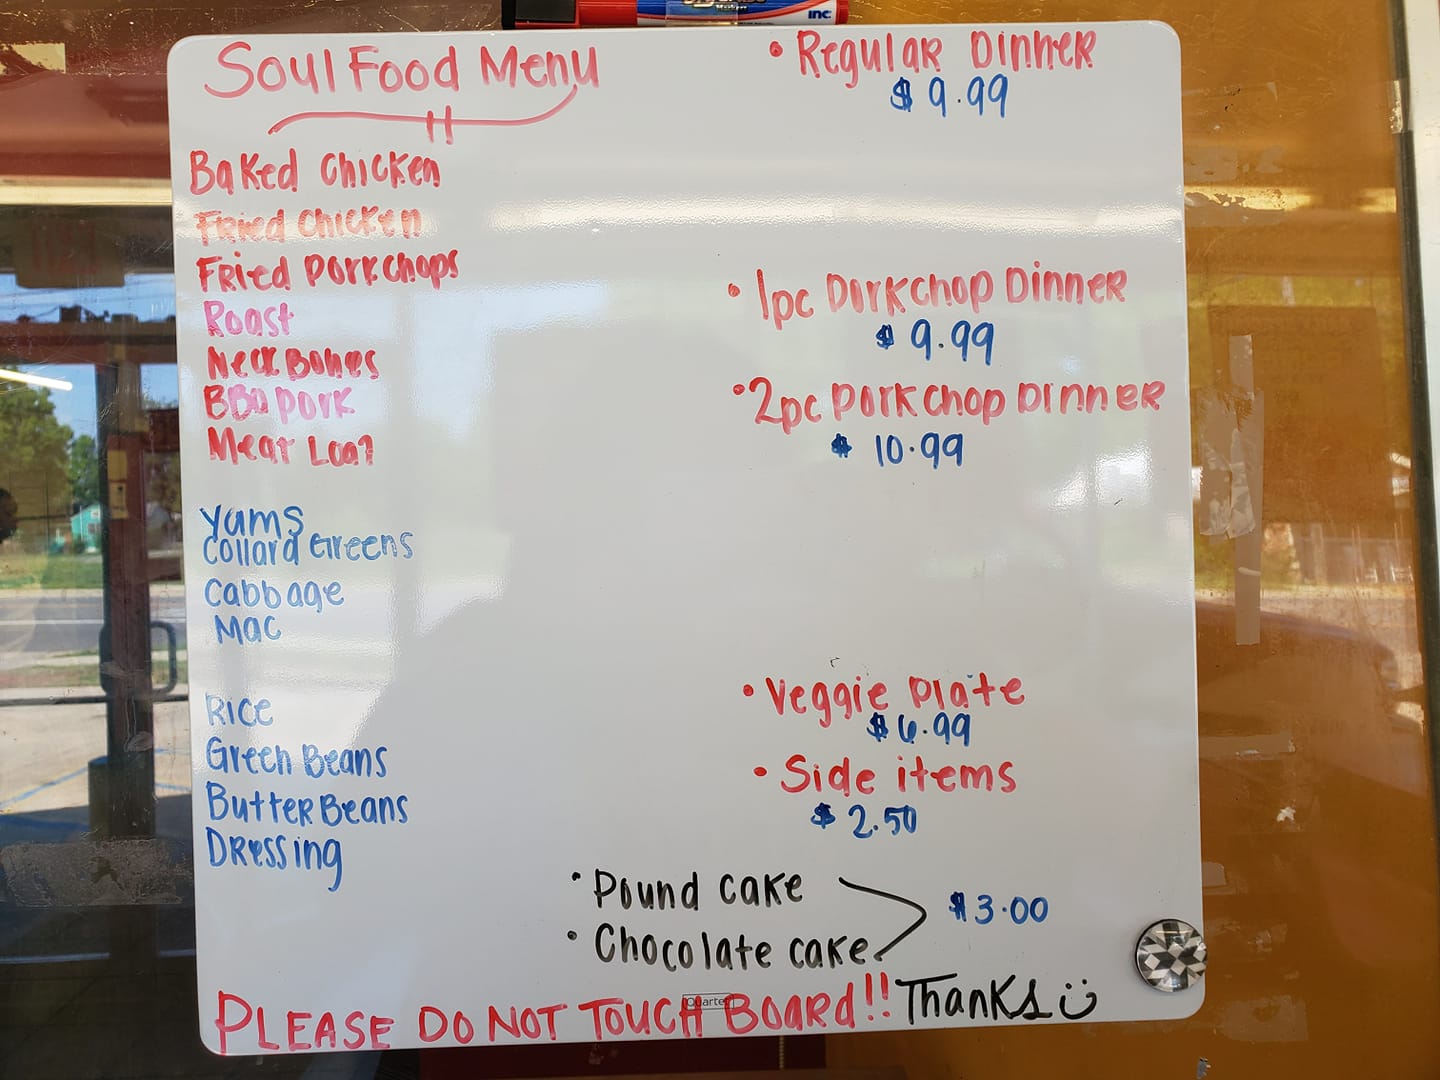 Soul Food Menu
Baked Chicken
Fried Chicken
Fried Porkchops
Roast
Neck Bones
BBQ Pork
Meat Loaf
Yams
Collard Greens
Cabbage
Mac
Rice
Green Beans
Butter Beans
Dressing
• Regular Dinner
$ 9.99
• 1pc Porkchop Dinner
$ 9.99
• 2pc Porkchop Dinner
$ 10.99
• Veggie Plate
$6.99
• Side items
$ 2.50
• Pound cake
• Chocolate cake
$3.00
PLEASE DO NOT TOUCH BOARD!! Thanks
Quartet
inc.